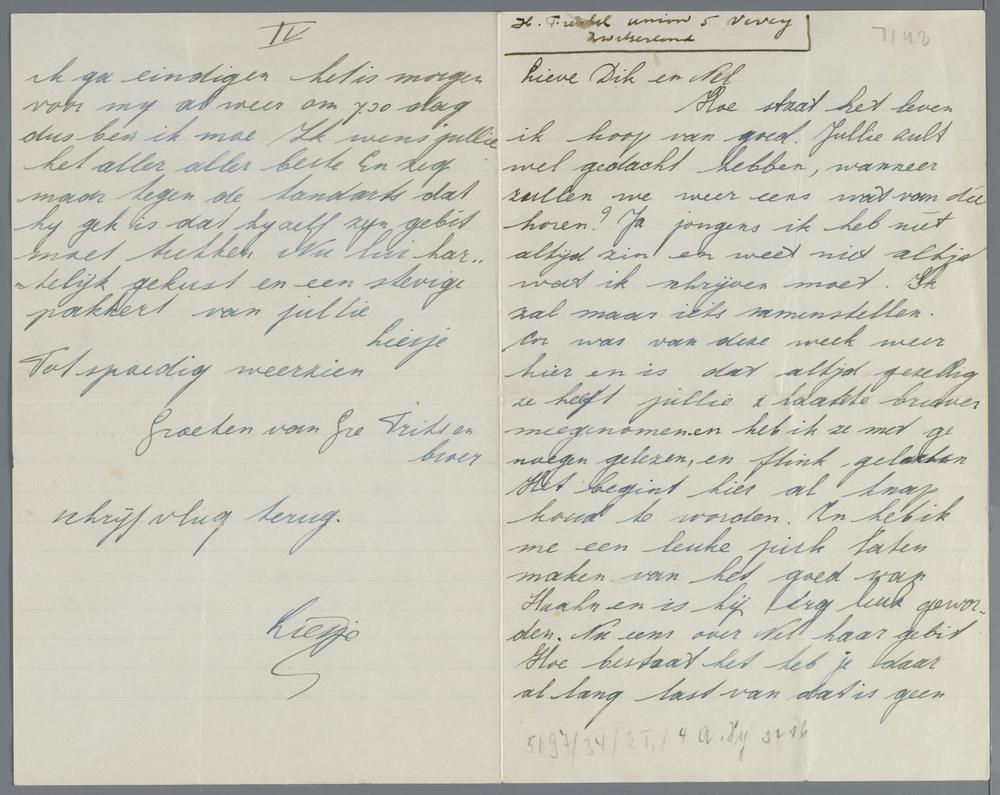 H. Frankel union 5 Vevey
Zwitserland
Lieve Dik en Nel
Hoe staat het leven
ik hoop van goed. Jullie zult
wel gedacht hebben, wanneer
zullen we weer eens wat van die
horen? Ja jongens ik heb niet
altijd zin en weet niet altijd
wat ik schrijven moet. Ik
zal maar iets samenstellen.
Cor was van deze week weer
hier en is dat altijd gezellig
ze heeft jullie laatste brieven
meegenomen en heb ik ze met ge
noegen gelezen, en flink gelachen
Het begint hier al knap
koud te worden. En heb ik
me een leuke jurk laten
maken van het goed van
en is hij erg leuk gewor..
den. Nu eens over Nel haar gebit
Hoe bestaat het heb je daar
al lang last van dat is geen
5697/34/2 I,/4
IV
ik ga eindigen het is morgen
voor my al weer om 7.30 dag
dus ben ik moe Ik wens jullie
het aller, aller beste En zeg
maar tegen de tandarts dat
hy gek is dat hyzelf zyn gebit
moet trekken Nu lui har..
telijk gekust en een stevige
pakkert van jullie
Liesje
Tot spoedig weerzien
Groeten van Gre Frits en
broer
schrijf vlug terug.
Liesje